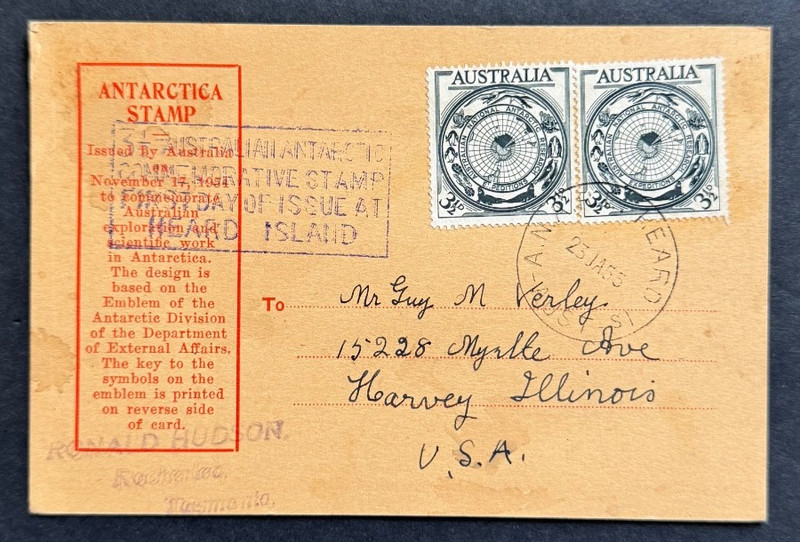 ANTARCTICA
STAMP
Issued by Australia
on
November 17, 1954
to commemorate
Australian
exploration and
scientific work
in Antarctica.
The design is
based on the
Emblem of the
Antarctic Division
of the Department
of External Affairs.
The key to the
symbols on the
emblem is printed
on reverse side
of card.
3½ AUSTRALIAN ANTARCTIC
COMMEMORATIVE STAMP
FIRST DAY OF ISSUE AT
HEARD ISLAND
AUSTRALIA
AUSTRALIAN NATIONAL ANTARCTIC RESEARCH EXPEDITIONS
3½D 3½D
AUSTRALIA
AUSTRALIAN NATIONAL ANTARCTIC RESEARCH EXPEDITIONS
3½D 3½D
HEARD
23 JA 55
To Mr Guy M Verley
15228 Myrtle Ave
Harvey Illinois
U.S.A.
RONALD HUDSON,
Tasmania.